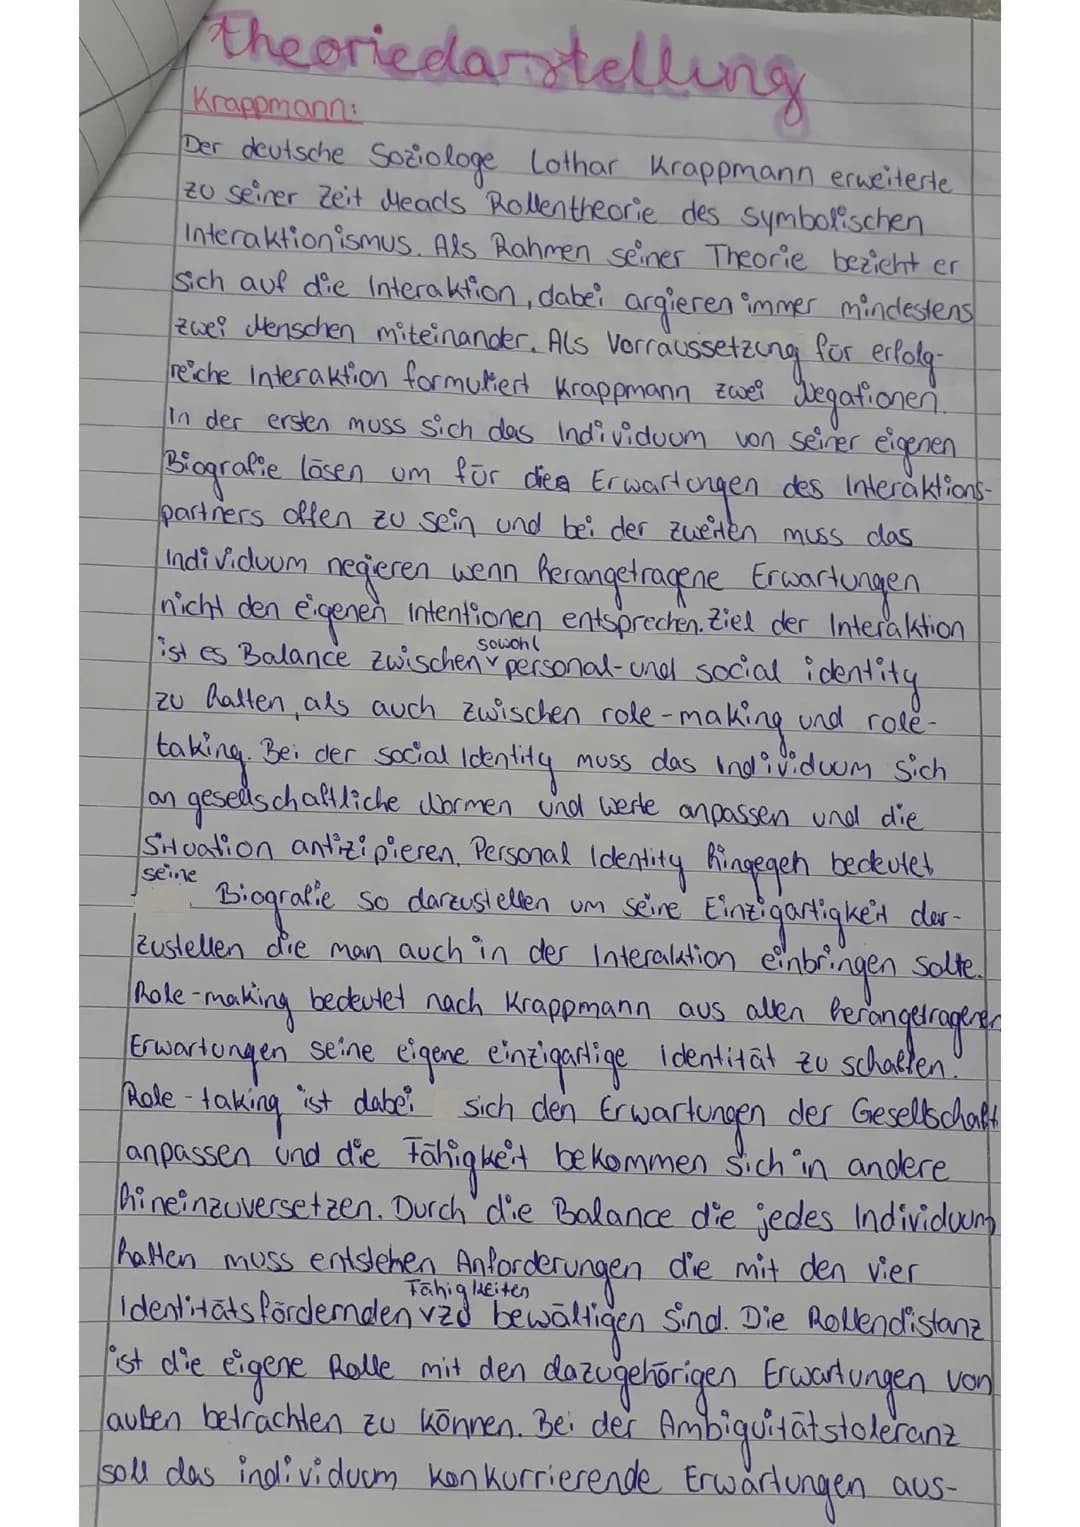 theoriedarstellung
Krappmann:
Der deutsche Soziologe Lothar Krappmann erweiterte
zu seiner Zeit Meads Rollentheorie des symbolischen
Interaktionismus. Als Rahmen seiner Theorie bezieht er
sich auf die Interaktion, dabei argieren immer mindestens
zwei Menschen miteinander. Als Vorraussetzung für erfolg-
reiche Interaktion formuliert Krappmann zwei Negationen.
In der ersten muss sich das Individuum von seiner eigenen
Biografie lösen um für die Erwartungen des Interaktions-
partners offen zu sein und bei der zweiten muss das
Individuum negieren wenn herangetragene Erwartungen
nicht den eigenen Intentionen entsprechen. Ziel der Interaktion
sowohl
ist es Balance zwischen v personal- und social identity
zu halten, als auch zwischen role-making und role-
taking. Bei der social Identity muss das individuum sich
an gesellschaftliche Normen und Werte anpassen und die
Situation antizipieren. Personal Identity hingegen bedeutet
seine
Biografie so darzustellen um seine Einzigartigkeit dar-
zustellen die man auch in der Interaktion einbringen sollte.
Role-making bedeutet nach Krappmann aus allen herangetragenen
Erwartungen seine eigene einzigartige Identität zu schaffen.
Role-taking ist dabei sich den Erwartungen der Gesellschaft
anpassen und die Fähigkeit bekommen sich in andere
hineinzuversetzen. Durch die Balance die jedes Individuum
halten muss entstehen Anforderungen die mit den vier
Fähigkeiten
Identitätsfördernden v zu bewältigen sind. Die Rollendistanz
ist die eigene Rolle mit den dazugehörigen Erwartungen von
außen betrachten zu können. Bei der Ambiguitätstoleranz
soll das individuum konkurrierende Erwartungen aus-